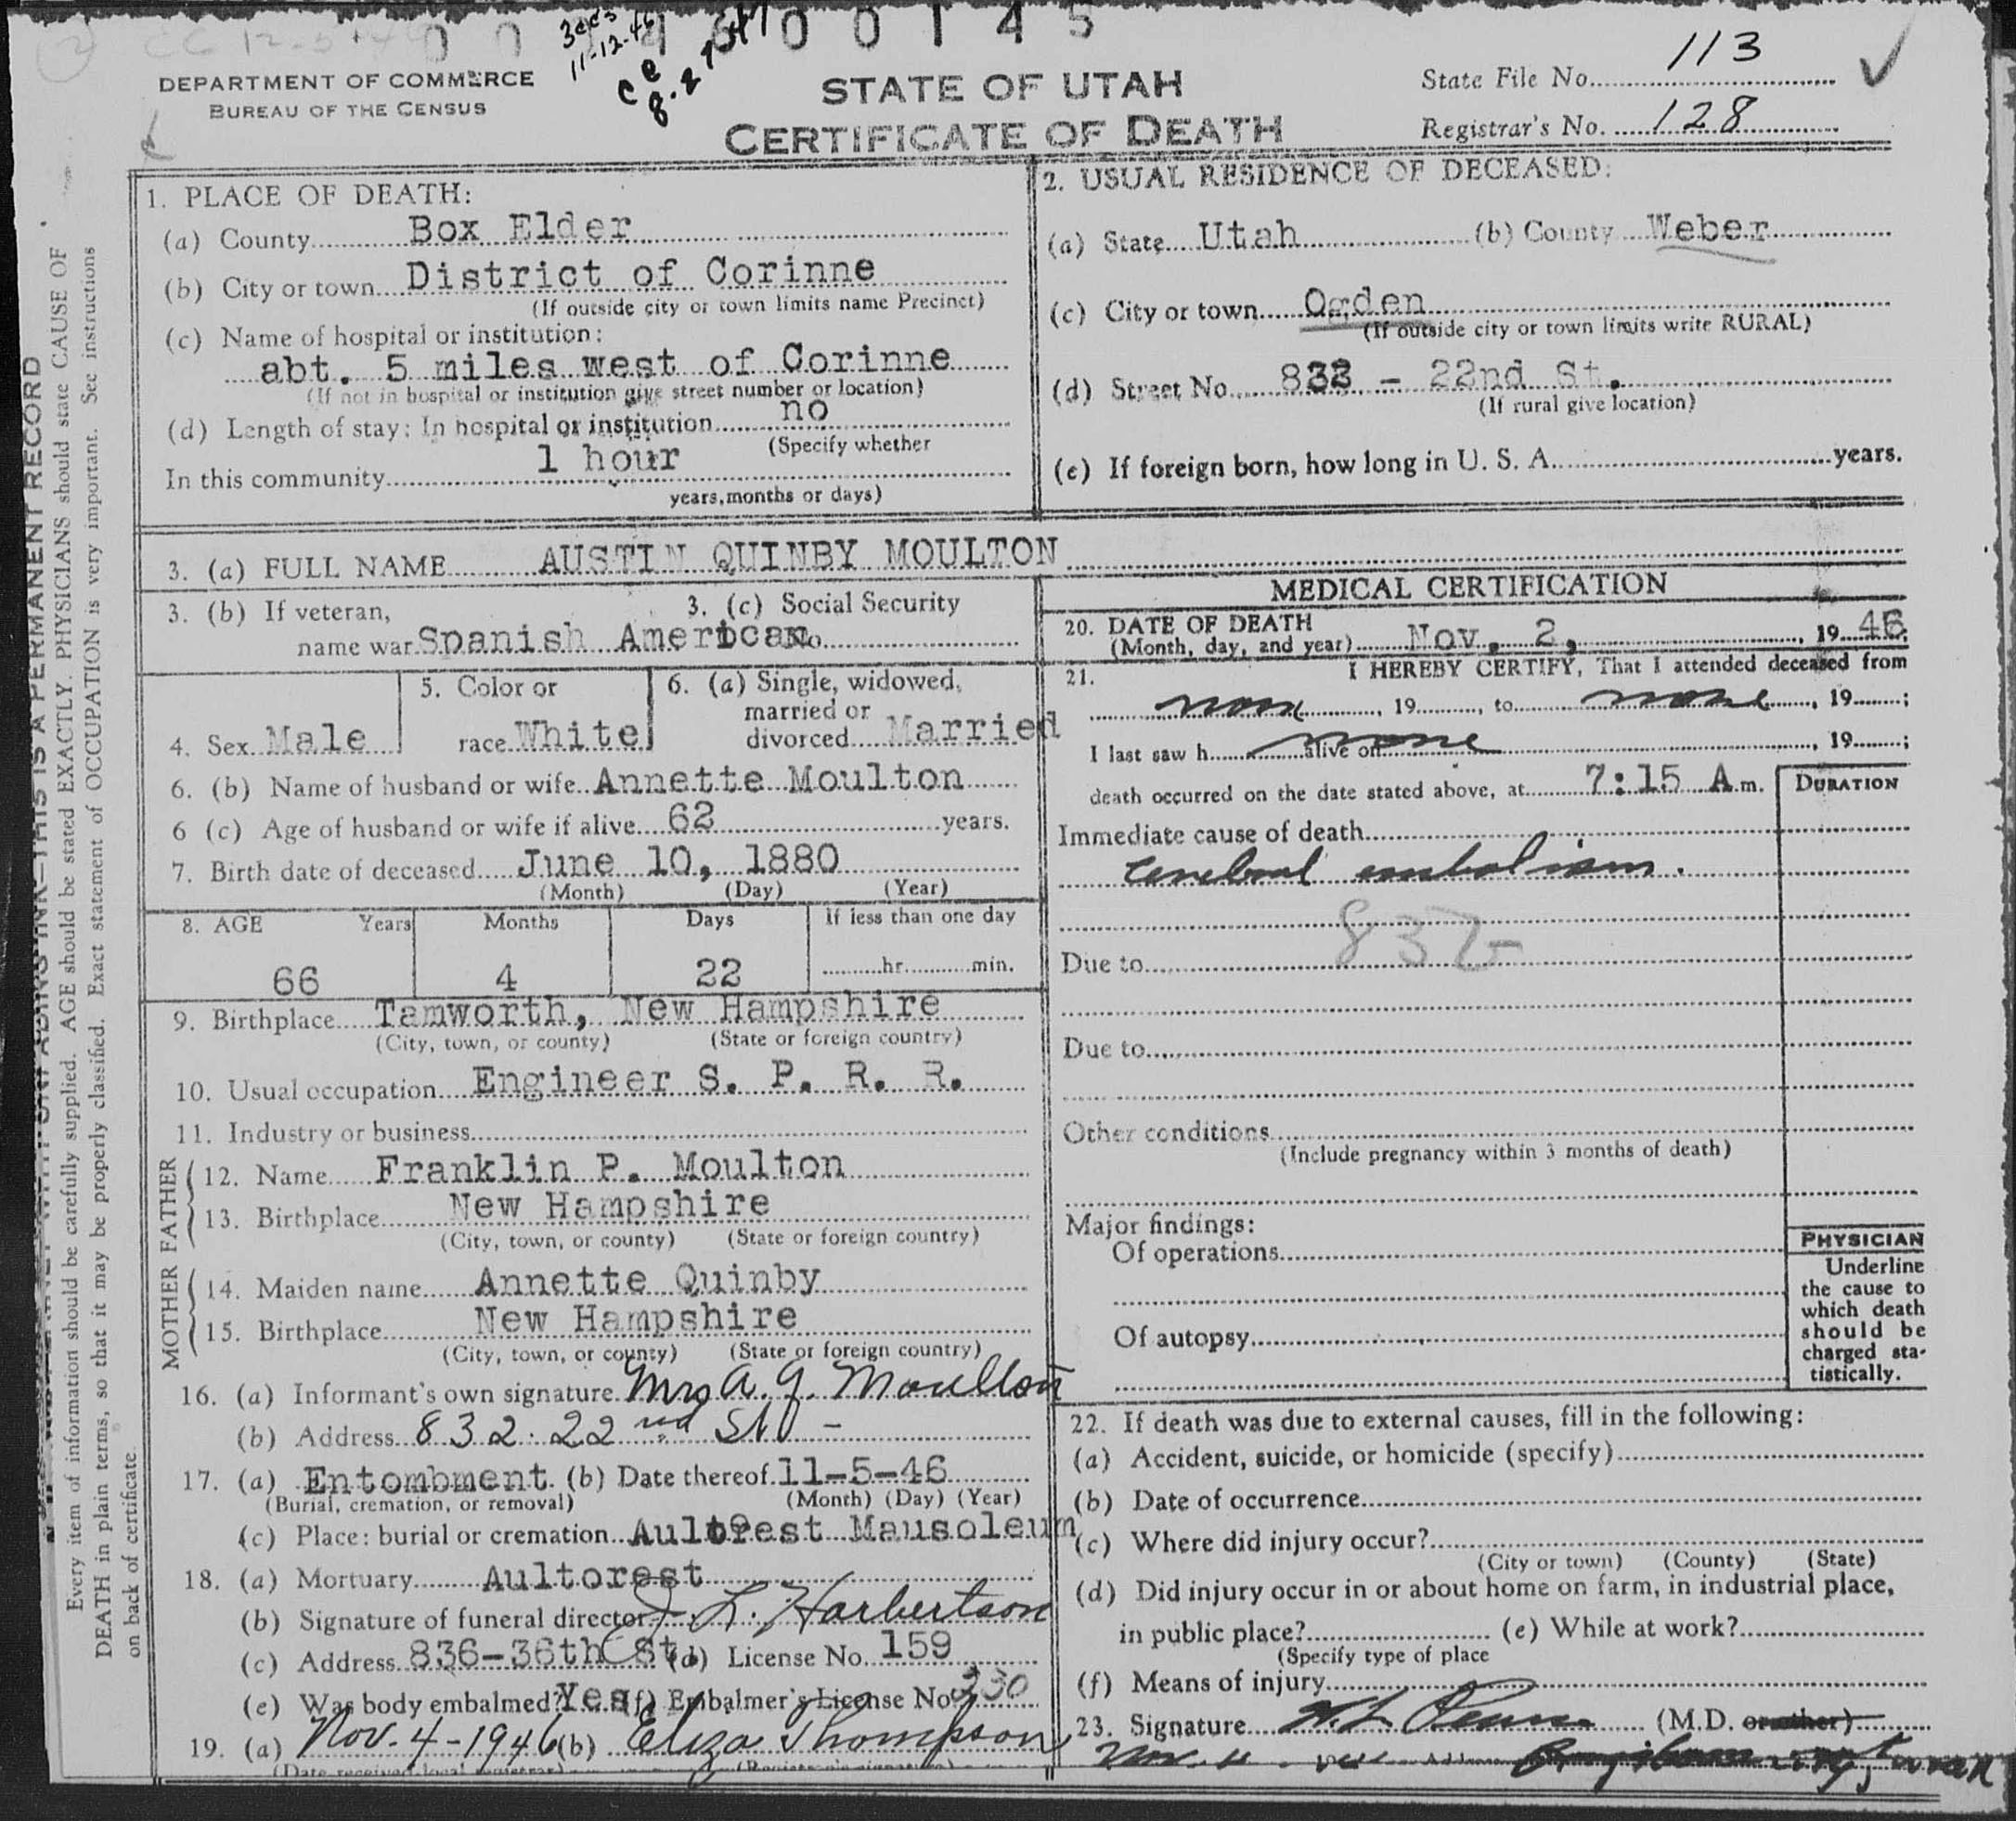 3ccs
11-12-46
CC
8-27-47
DEPARTMENT OF COMMERCE
BUREAU OF THE CENSUS
STATE OF UTAH
CERTIFICATE OF DEATH
State File No. 113
Registrar's No. 128
1. PLACE OF DEATH:
(a) County Box Elder
(b) City or town District of Corinne
(If outside city or town limits name Precinct)
(c) Name of hospital or institution:
abt. 5 miles west of Corinne
(If not in hospital or institution give street number or location)
(d) Length of stay: In hospital or institution no
(Specify whether
In this community 1 hour
years, months or days)
2. USUAL RESIDENCE OF DECEASED:
(a) State Utah (b) County Weber
(c) City or town Ogden
(If outside city or town limits write RURAL)
(d) Street No. 832 - 22nd St.
(If rural give location)
(e) If foreign born, how long in U. S. A. years.
3. (a) FULL NAME AUSTIN QUINBY MOULTON
3. (b) If veteran, 3. (c) Social Security
name war Spanish American No.
4. Sex Male
5. Color or
race White
6. (a) Single, widowed,
married or
divorced Married
6. (b) Name of husband or wife Annette Moulton
6 (c) Age of husband or wife if alive 62 years.
7. Birth date of deceased June 10, 1880
(Month) (Day) (Year)
8. AGE Years Months Days If less than one day
66 4 22 hr. min.
9. Birthplace Tamworth, New Hampshire
(City, town, or county) (State or foreign country)
10. Usual occupation Engineer S. P. R. R.
11. Industry or business
FATHER
12. Name Franklin P. Moulton
13. Birthplace New Hampshire
(City, town, or county) (State or foreign country)
MOTHER
14. Maiden name Annette Quinby
15. Birthplace New Hampshire
(City, town, or county) (State or foreign country)
16. (a) Informant's own signature Mrs A. Q. Moulton
(b) Address 832 22nd St -
17. (a) Entombment (b) Date thereof 11-5-46
(Burial, cremation, or removal) (Month) (Day) (Year)
(c) Place: burial or cremation Aultorest Mausoleum
18. (a) Mortuary Aultorest
(b) Signature of funeral director J. L. Harbertson
(c) Address 836-36th St. (d) License No. 159
(e) Was body embalmed? Yes (f) Embalmer's License No. 330
19. (a) Nov. 4-1946 (b) Eliza Thompson
(Date received local registrar) (Registrar's signature)
MEDICAL CERTIFICATION
20. DATE OF DEATH
(Month, day, and year) Nov. 2, 19 46
21. I HEREBY CERTIFY, That I attended deceased from
none, 19 , to none, 19 ;
I last saw h alive on none, 19 ;
death occurred on the date stated above, at 7:15 A m.
DURATION
Immediate cause of death
Cerebral embolism.
Due to
Due to
Other conditions
(Include pregnancy within 3 months of death)
Major findings:
Of operations
Of autopsy
PHYSICIAN
Underline
the cause to
which death
should be
charged sta-
tistically.
22. If death was due to external causes, fill in the following:
(a) Accident, suicide, or homicide (specify)
(b) Date of occurrence
(c) Where did injury occur?
(City or town) (County) (State)
(d) Did injury occur in or about home on farm, in industrial place,
in public place? (e) While at work?
(Specify type of place
(f) Means of injury
23. Signature (M.D. or other)
Nov. Address
THIS IS A PERMANENT RECORD
Every item of information should be carefully supplied. AGE should be stated EXACTLY. PHYSICIANS should state CAUSE OF
DEATH in plain terms, so that it may be properly classified. Exact statement of OCCUPATION is very important. See instructions
on back of certificate.